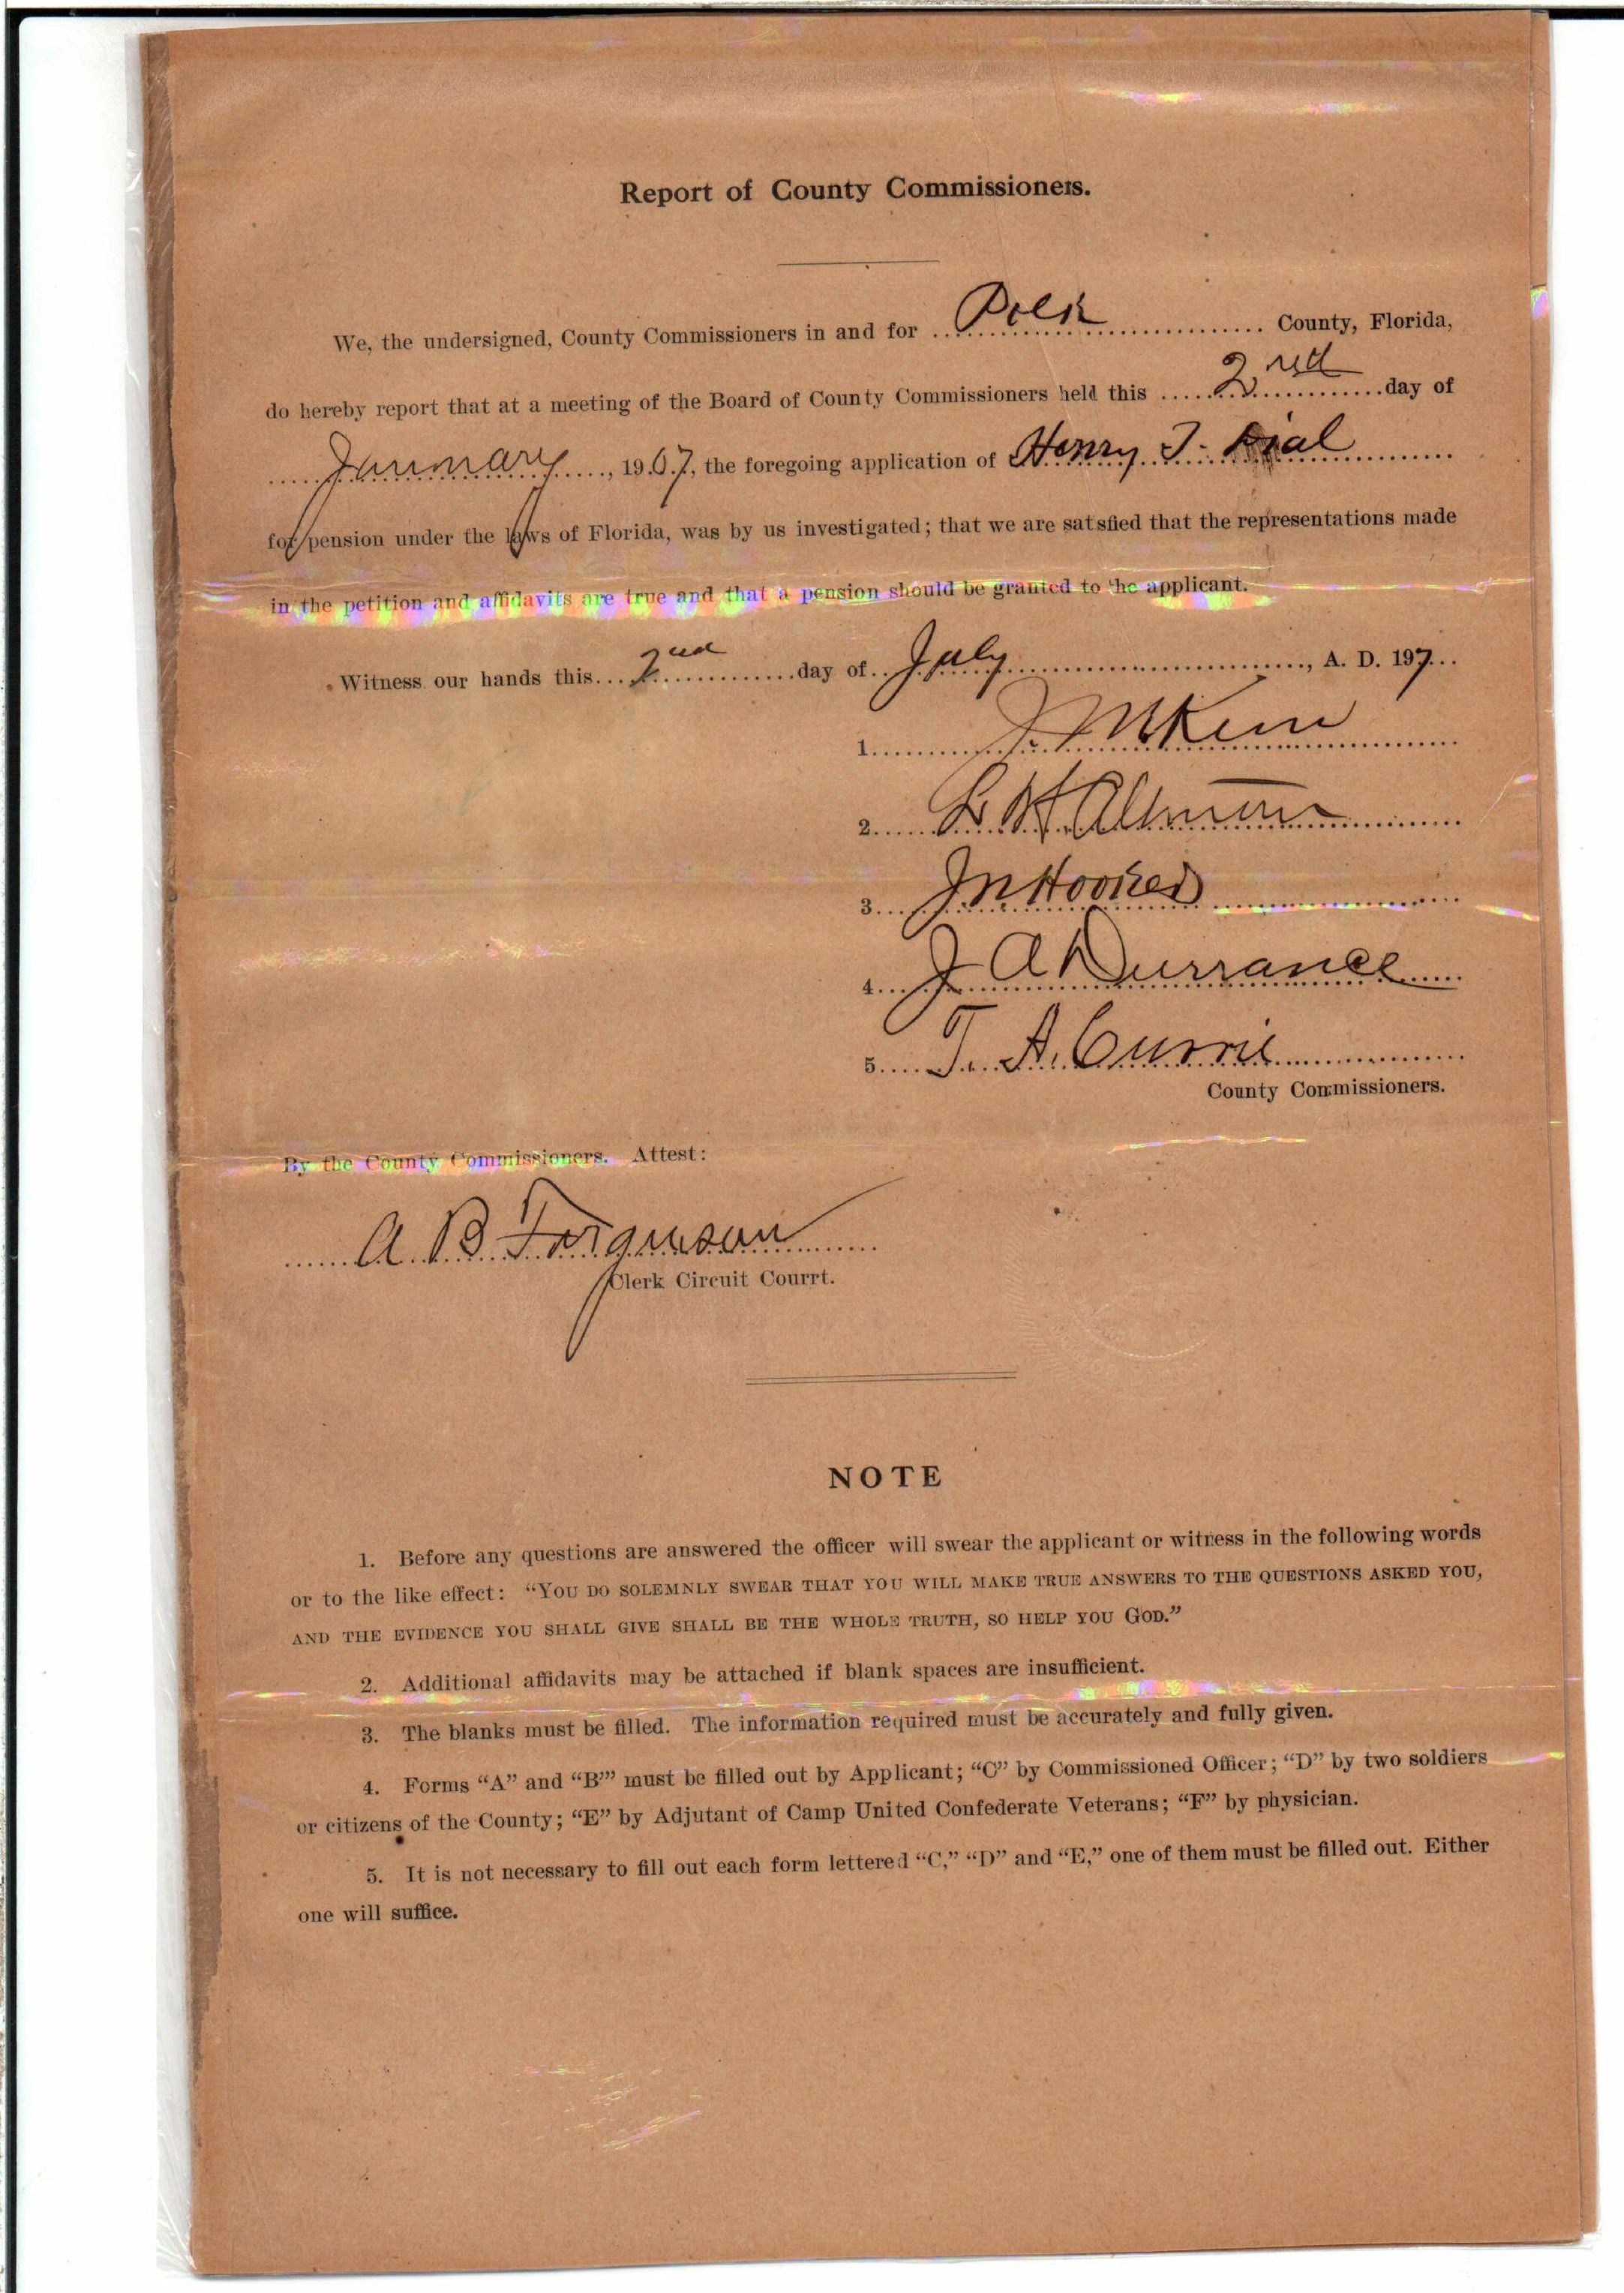 Report of County Commissioners.
We, the undersigned, County Commissioners in and for Polk County, Florida,
do hereby report that at a meeting of the Board of County Commissioners held this 2nd day of
January, 1907, the foregoing application of Henry T. Dial
for pension under the laws of Florida, was by us investigated; that we are satsfied that the representations made
in the petition and affidavits are true and that a pension should be granted to the applicant.
Witness our hands this 2nd day of July, A. D. 197
1. J.
2. L H Altman
3. J N Hooker
4. J A Durrance
5. T. A. Currie
County Commissioners.
By the County Commissioners. Attest:
A B Ferguson
Clerk Circuit Courrt.
NOTE
1. Before any questions are answered the officer will swear the applicant or witness in the following words
or to the like effect: “YOU DO SOLEMNLY SWEAR THAT YOU WILL MAKE TRUE ANSWERS TO THE QUESTIONS ASKED YOU,
AND THE EVIDENCE YOU SHALL GIVE SHALL BE THE WHOLE TRUTH, SO HELP YOU GOD.”
2. Additional affidavits may be attached if blank spaces are insufficient.
3. The blanks must be filled. The information required must be accurately and fully given.
4. Forms “A” and “B”’ must be filled out by Applicant; “C” by Commissioned Officer; “D” by two soldiers
or citizens of the County; “E” by Adjutant of Camp United Confederate Veterans; “F” by physician.
5. It is not necessary to fill out each form lettered “C,” “D” and “E,” one of them must be filled out. Either
one will suffice.